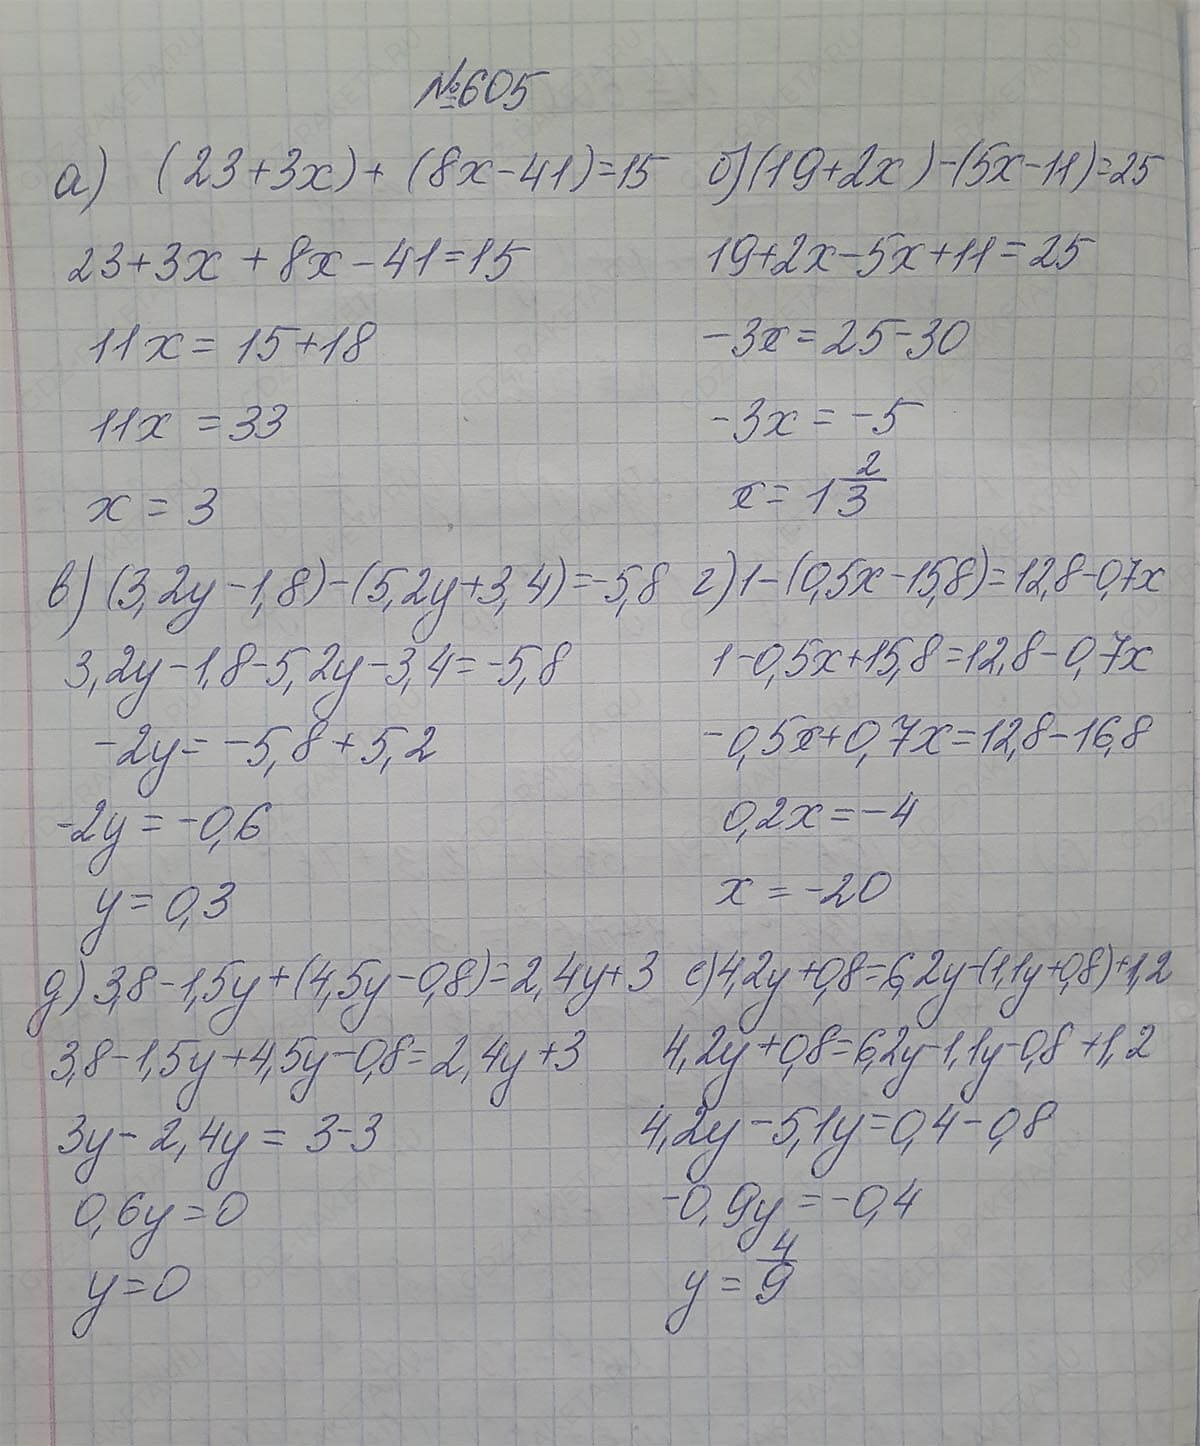 №605
а) (23+3x)+(8x-41)=15
23+3x+8x-41=15
11x=15+18
11x=33
x=3
б)(19+2x)-(5x-11)=25
19+2x-5x+11=25
-3x=25-30
-3x=-5
x=1 2/3
в)(3,2y-1,8)-(5,2y+3,4)=-5,8
3,2y-1,8-5,2y-3,4=-5,8
-2y=-5,8+5,2
-2y=-0,6
y=0,3
г)1-(0,5x-15,8)=12,8-0,7x
1-0,5x+15,8=12,8-0,7x
-0,5x+0,7x=12,8-16,8
0,2x=-4
x=-20
д)3,8-1,5y+(4,5y-0,8)=2,4y+3
3,8-1,5y+4,5y-0,8=2,4y+3
3y-2,4y=3-3
0,6y=0
y=0
е)4,2y+0,8=6,2y-(1,1y+0,8)+1,2
4,2y+0,8=6,2y-1,1y-0,8+1,2
4,2y-5,1y=0,4-0,8
-0,9y=-0,4
y=4/9